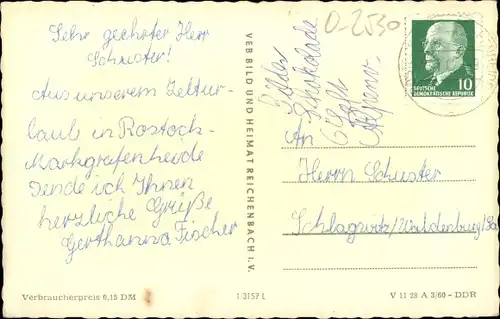 Sehr geehrter Herr
Schuster!
Aus unserem Zeltur-
laub in Rostock-
Markgrafenheide
sende ich Ihnen
herzliche Grüße
Gerthanna Fischer
Verbraucherpreis 0,15 DM
VEB BILD UND HEIMAT REICHENBACH I. V.
1 3157 L
O-2530
Schokolade
DEUTSCHE
DEMOKRATISCHE REPUBLIK
10
An
Herrn Schuster
Schlagwitz/Waldenburg/Sa
V 11 28 A 3/60 - DDR